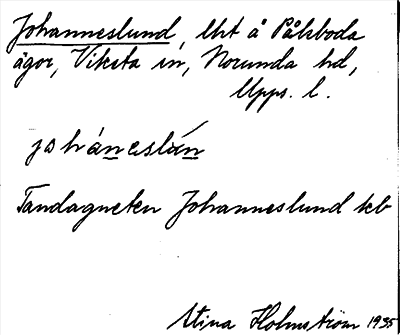 Johanneslund, lht å Pålsboda
ägor, Viksta sn, Norunda hd,
Upps. l.
joháneslún
Johanneslund
Stina Holmström 1935